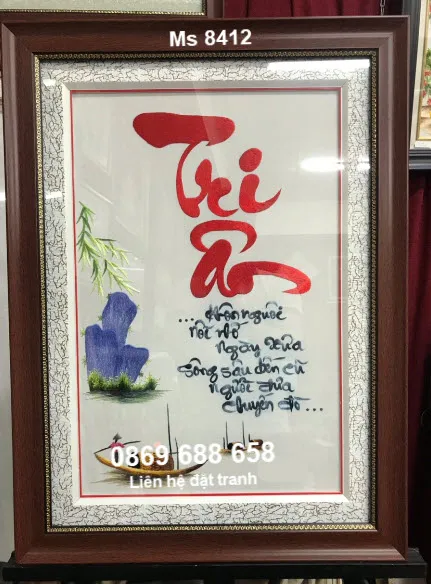 Ms 8412
Tri
ân
... Hôn người
nơi nớ
ngày xưa
Sông sâu bến cũ
người đưa
chuyến đò ...
0869 688 658
Liên hệ đặt tranh